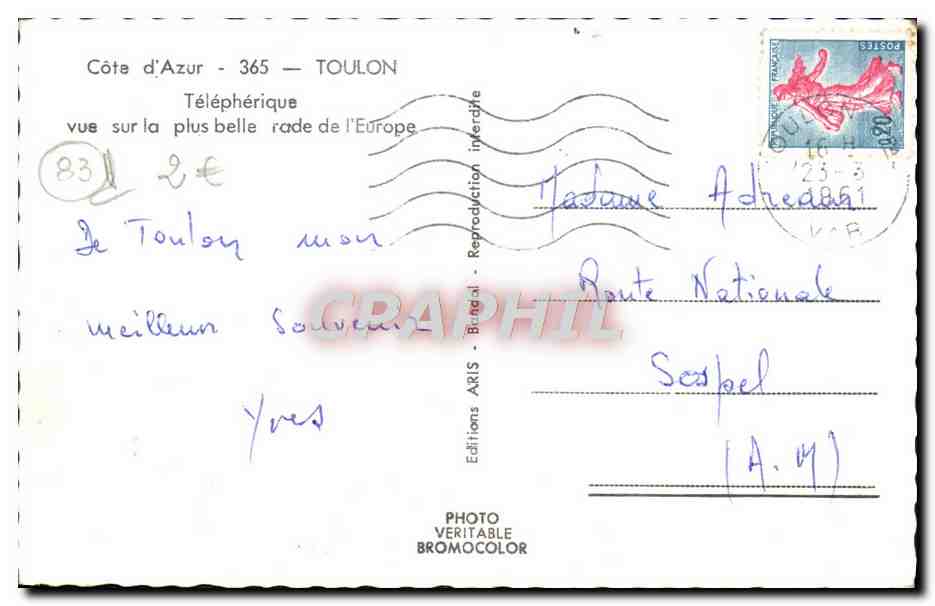 Côte d'Azur - 365 — TOULON
Téléphérique
vue sur la plus belle rade de l'Europe
83
2€
De Toulon mon
meilleur souvenir
Yves
Editions ARIS - Bandol - Reproduction interdite
PHOTO
VERITABLE
BROMOCOLOR
REPUBLIQUE FRANÇAISE
POSTES
0,20
16 H
23-3
1961
VAR
Madame
Route Nationale
Sospel
(A.M)
CPAPHIL